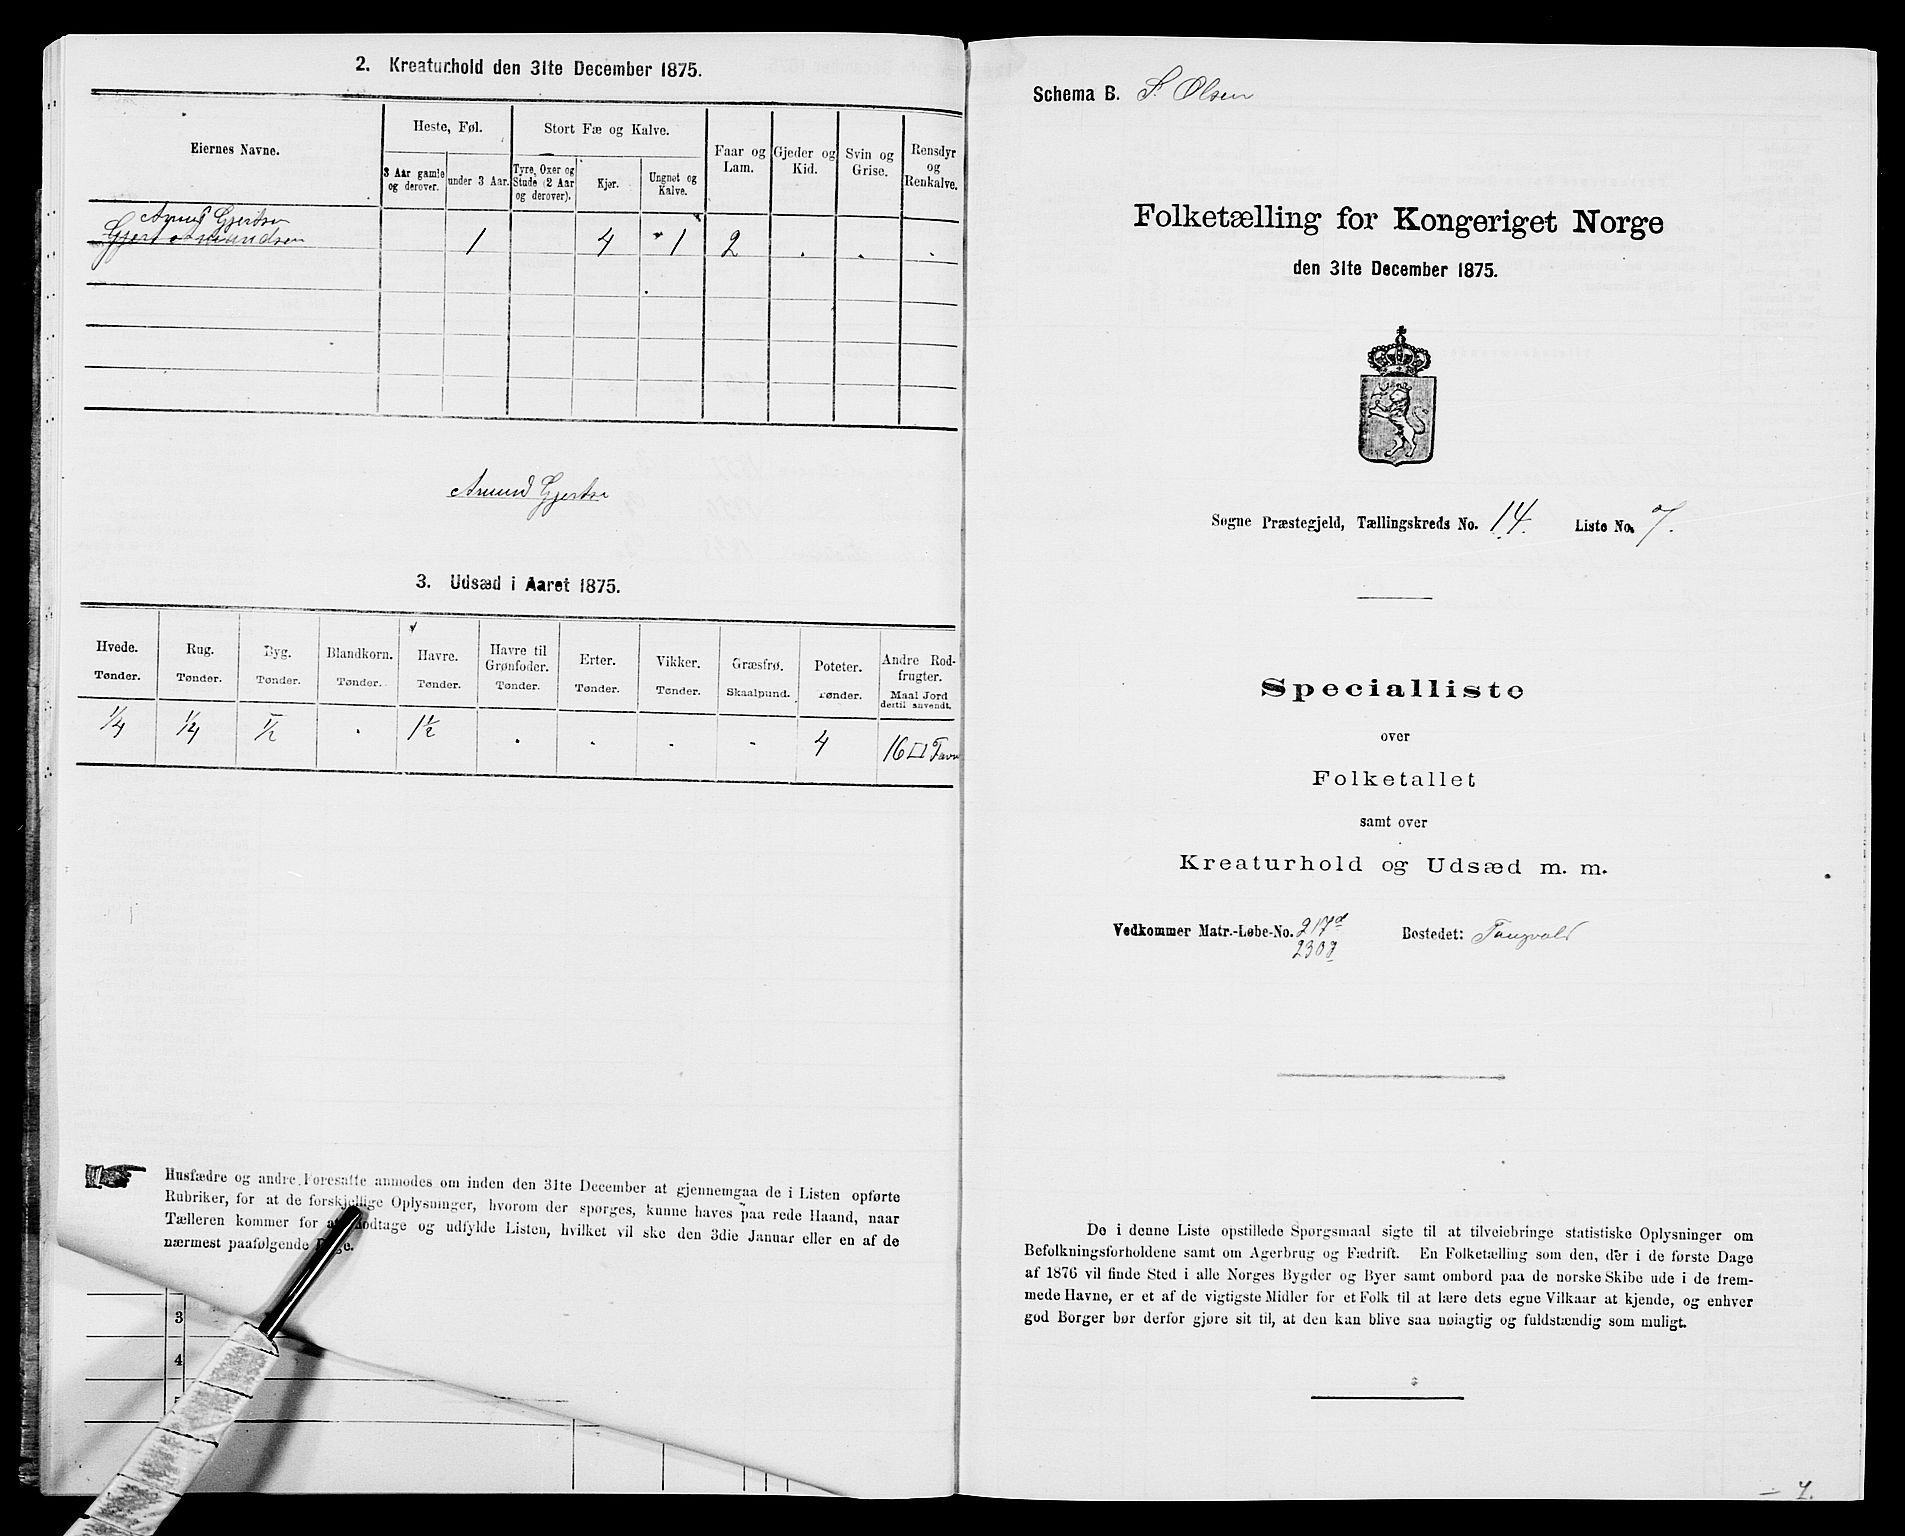 2. Kreaturhold den 31te December 1875.
Eiernes Navne.
Heste, Føl.
Stort Fæ og Kalve.
Faar og Lam.
Gjeder og Kid.
Svin og Grise.
Rensdyr og Renkalve.
3 Aar gamle og derover.
under 3 Aar.
Tyre, Oxer og Stude (2 Aar og derover).
Kjør.
Ungnøt og Kalve.
Gjertsen
1 4 1 2 . . .
Gjertsen
3. Udsæd i Aaret 1875.
Hvede. Tønder.
Rug. Tønder.
Byg. Tønder.
Blandkorn. Tønder.
Havre. Tønder.
Havre til Grønfoder. Tønder.
Erter. Tønder.
Vikker. Tønder.
Græsfrø. Skaalpund.
Poteter. Tønder.
Andre Rodfrugter. Maal Jord dertil anvendt.
1/4 1/4 1/2 . 1 1/2 . . . . 4 16 □ Favn
Husfædre og andre Foresatte anmodes om inden den 31te December at gjennemgaa de i Listen opførte
Rubriker, for at de forskjellige Oplysninger, hvorom der spørges, kunne haves paa rede Haand, naar
Tælleren kommer for at modtage og udfylde Listen, hvilket vil ske den 3die Januar eller en af de
nærmest paafølgende Dage.
3
4
Schema B. S. Olsen
Folketælling for Kongeriget Norge
den 31te December 1875.
Søgne Præstegjeld, Tællingskreds No. 14. Liste No. 7.
Specialliste
over
Folketallet
samt over
Kreaturhold og Udsæd m. m.
Vedkommer Matr.-Løbe-No. 217d Bostedet: Tangvald
230
De i denne Liste opstillede Spørgsmaal sigte til at tilveiebringe statistiske Oplysninger om
Befolkningsforholdene samt om Agerbrug og Fædrift. En Folketælling som den, der i de første Dage
af 1876 vil finde Sted i alle Norges Bygder og Byer samt ombord paa de norske Skibe ude i de frem-
mede Havne, er et af de vigtigste Midler for et Folk til at lære dets egne Vilkaar at kjende, og enhver
god Borger bør derfor gjøre sit til, at den kan blive saa nøiagtig og fuldstændig som muligt.